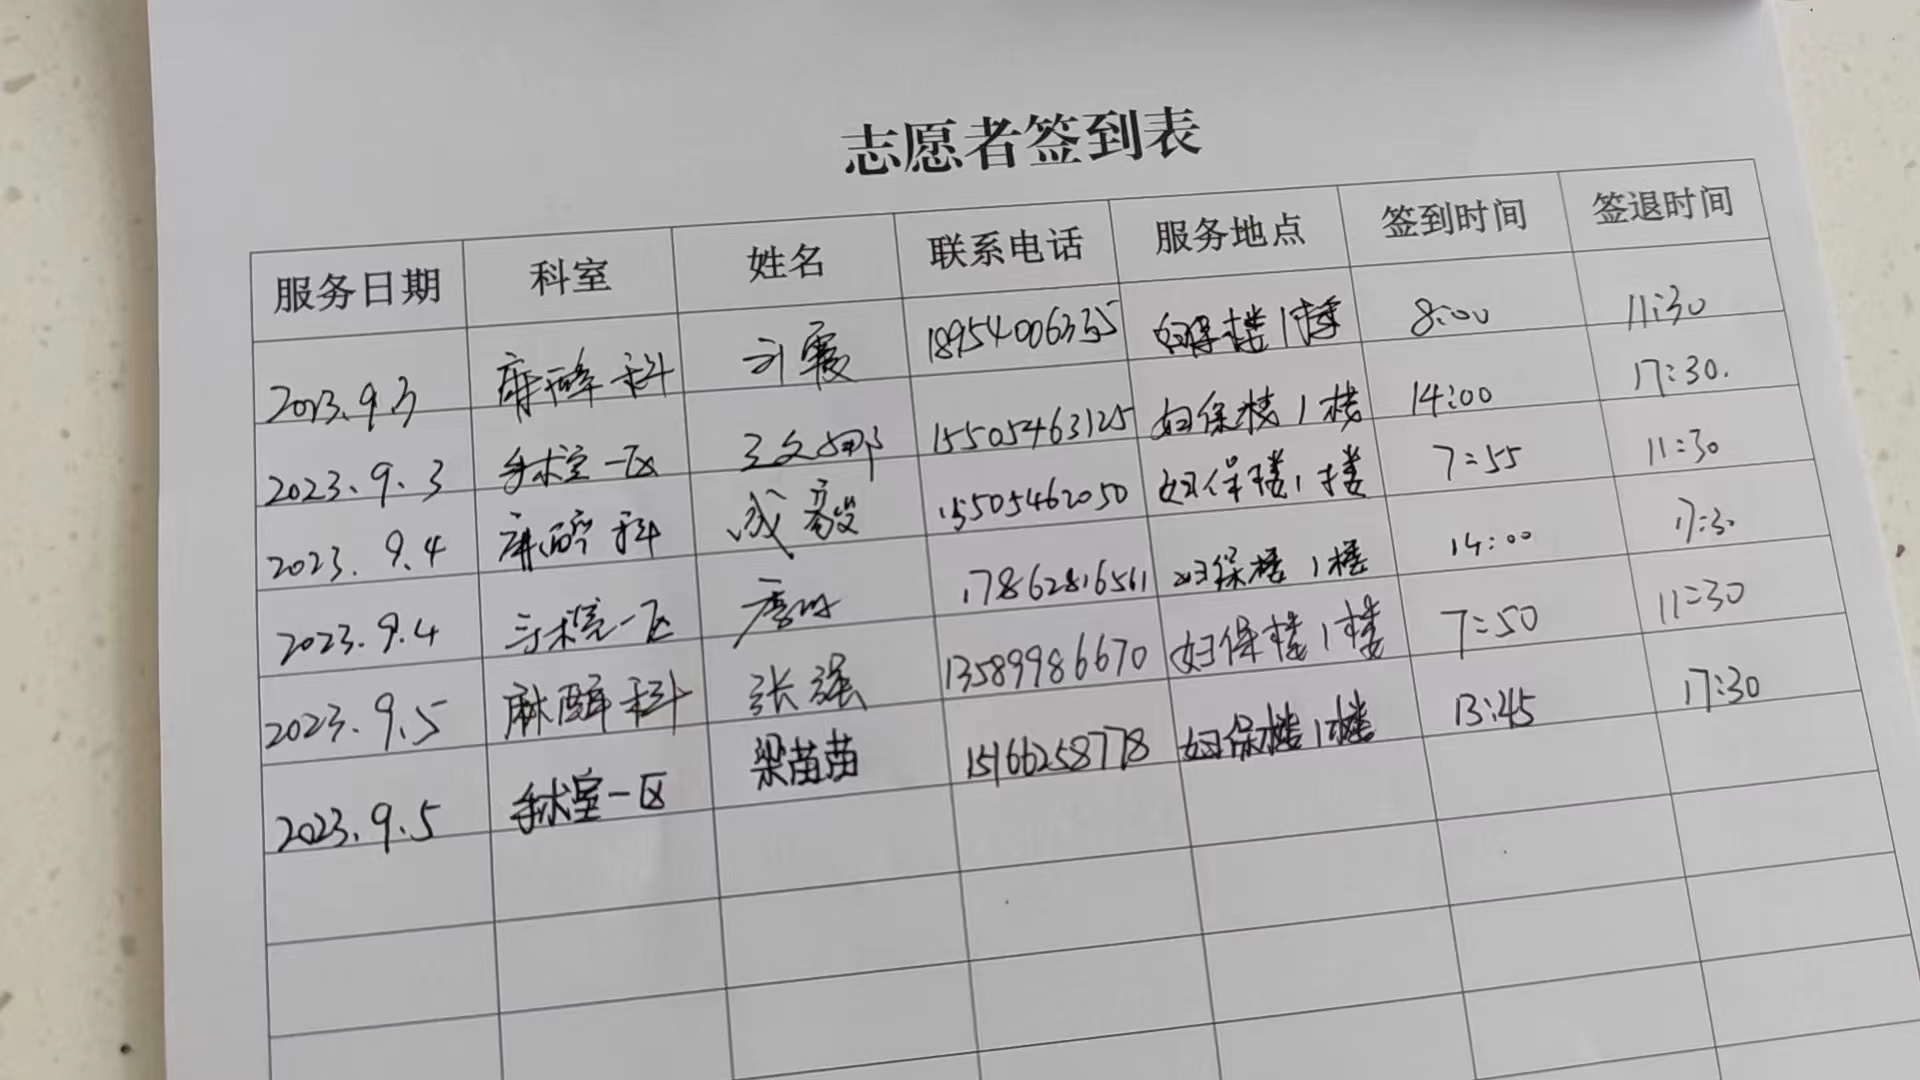 志愿者签到表
服务日期 科室 姓名 联系电话 服务地点 签到时间 签退时间
2023.9.3 麻醉科 刘霞 妇保楼1楼 8:00 11:30
2023.9.3 手术室一区 王文娜 15505463125 妇保楼1楼 14:00 17:30.
2023.9.4 麻醉科 成毅 15505462050 妇保楼1楼 7:55 11:30
2023.9.4 手术室一区 17862816561 妇保楼1楼 14:00 17:30
2023.9.5 麻醉科 张强 13589986670 妇保楼1楼 7:50 11:30
2023.9.5 手术室一区 梁苗苗 15166258778 妇保楼1楼 13:45 17:30